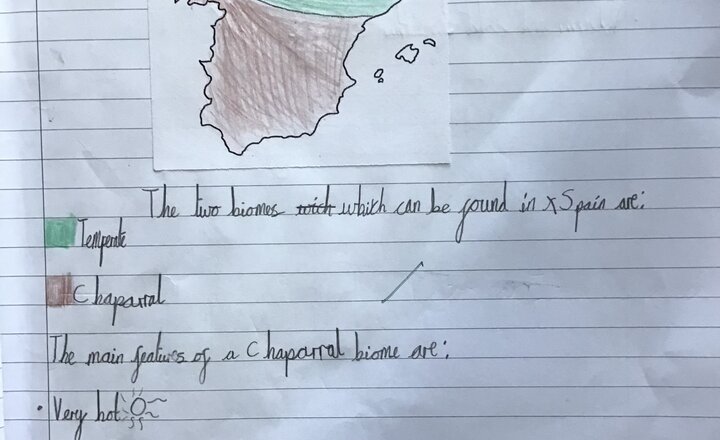 The two biomes which can be found in Spain are:
Temperate
Chaparral
The main features of a Chaparral biome are:
• Very hot